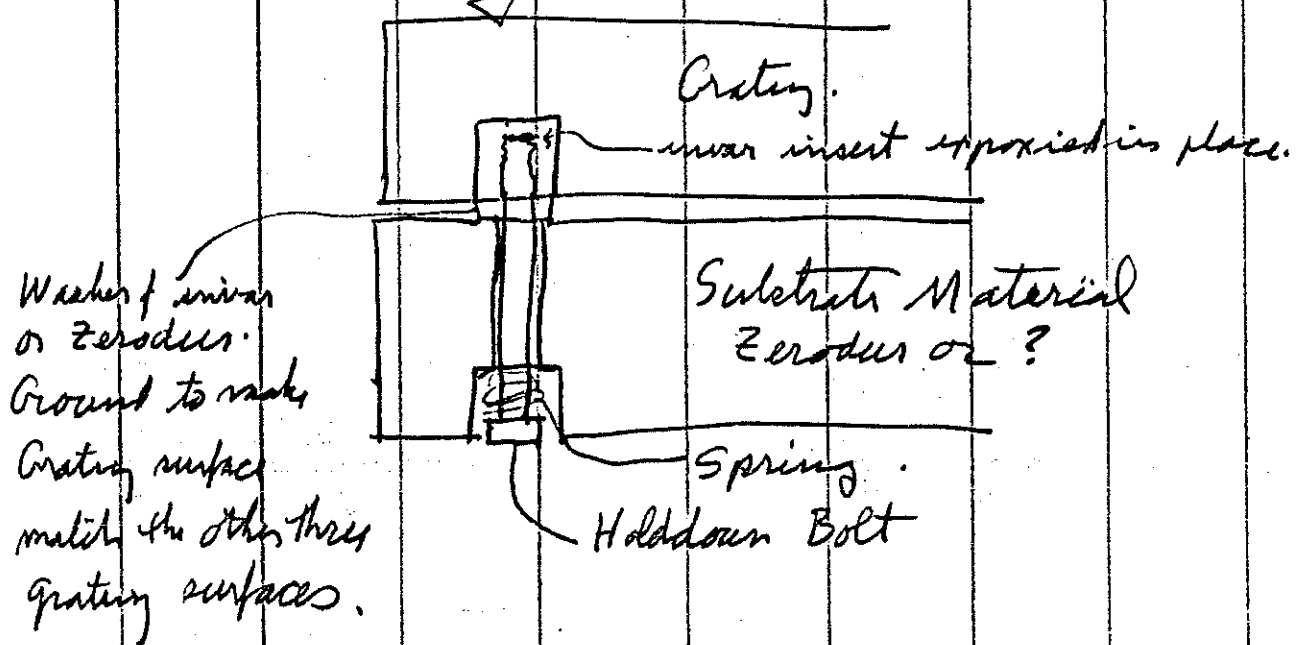 Grating.
invar insert expoxied in place.
Washer of invar
or Zerodur.
Ground to make
Grating surface
match the other three
grating surfaces.
Substrate Material
Zerodur or ?
Spring.
Holddown Bolt